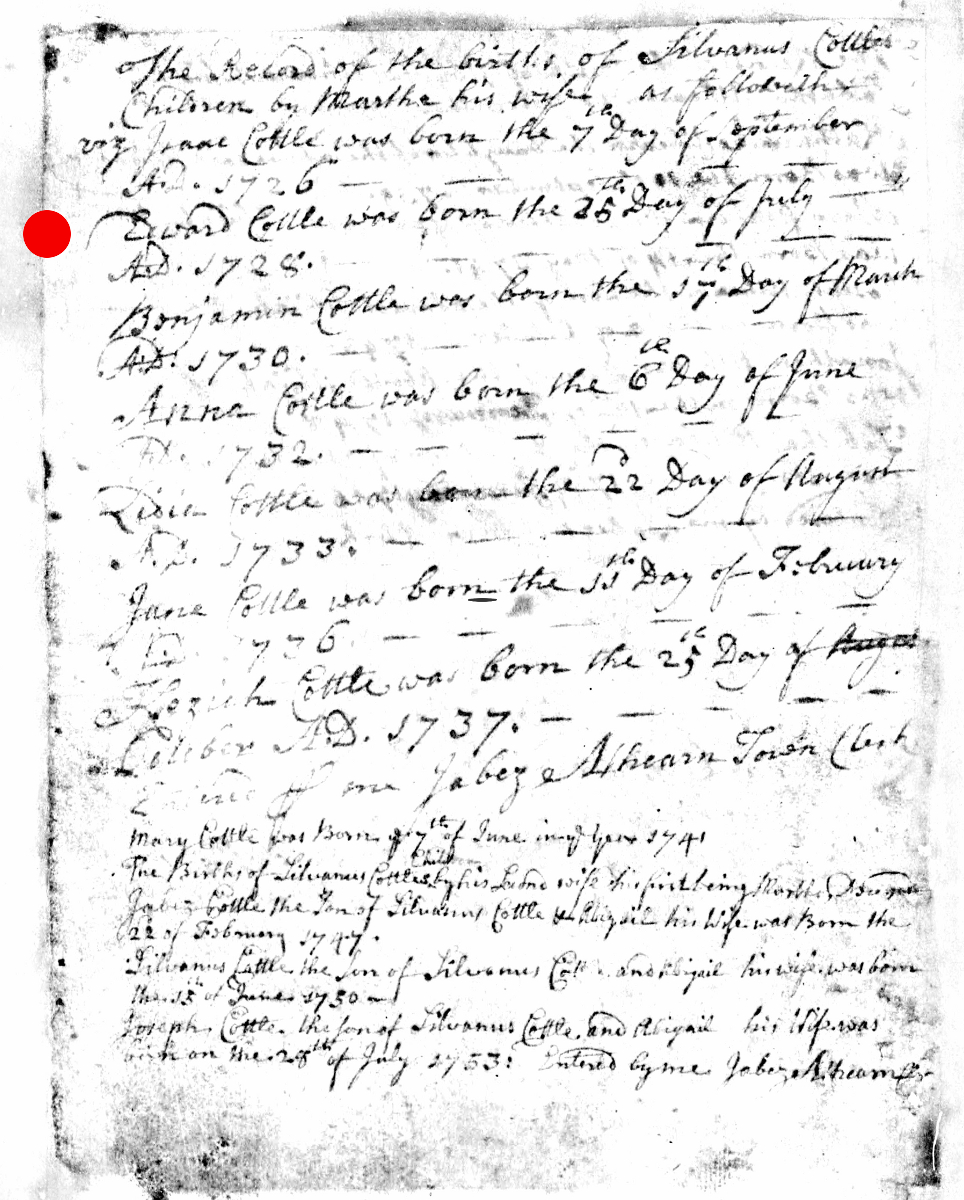 The Record of the births of Silvanus Cottles
Children by Martha his wife as followeth
viz Isaac Cottle was born the 7th Day of September
A.D. 1726
Edward Cottle was born the 25th Day of July
A.D. 1728.
Benjamin Cottle was born the 17th Day of March
A.D. 1730.
Anna Cottle was born the 6th Day of June
A.D. 1732.
Cottle was born the 22 Day of August
A.D. 1733.
Jane Cottle was born the 11th Day of February
A.D. 1736
Cottle was born the 25th Day of Augus
October A.D. 1737.
Entered me Jabez Athearn Town Clerk
Mary Cottle was Born ye 7th of June in ye year 1741
The Births of Silvanus Cottles Children by his Second wife his first being Martha Deceased
Jabez Cottle the Son of Silvanus Cottle & Abigail his Wife was Born the
22 of February 1747.
Silvanus Cottle the Son of Silvanus Cottle and Abigail his wife was born
the 15th of June 1750
Joseph Cottle the son of Silvanus Cottle and Abigail his Wife was
born on the 28th of July 1753: Entered by me Jabez Athearn